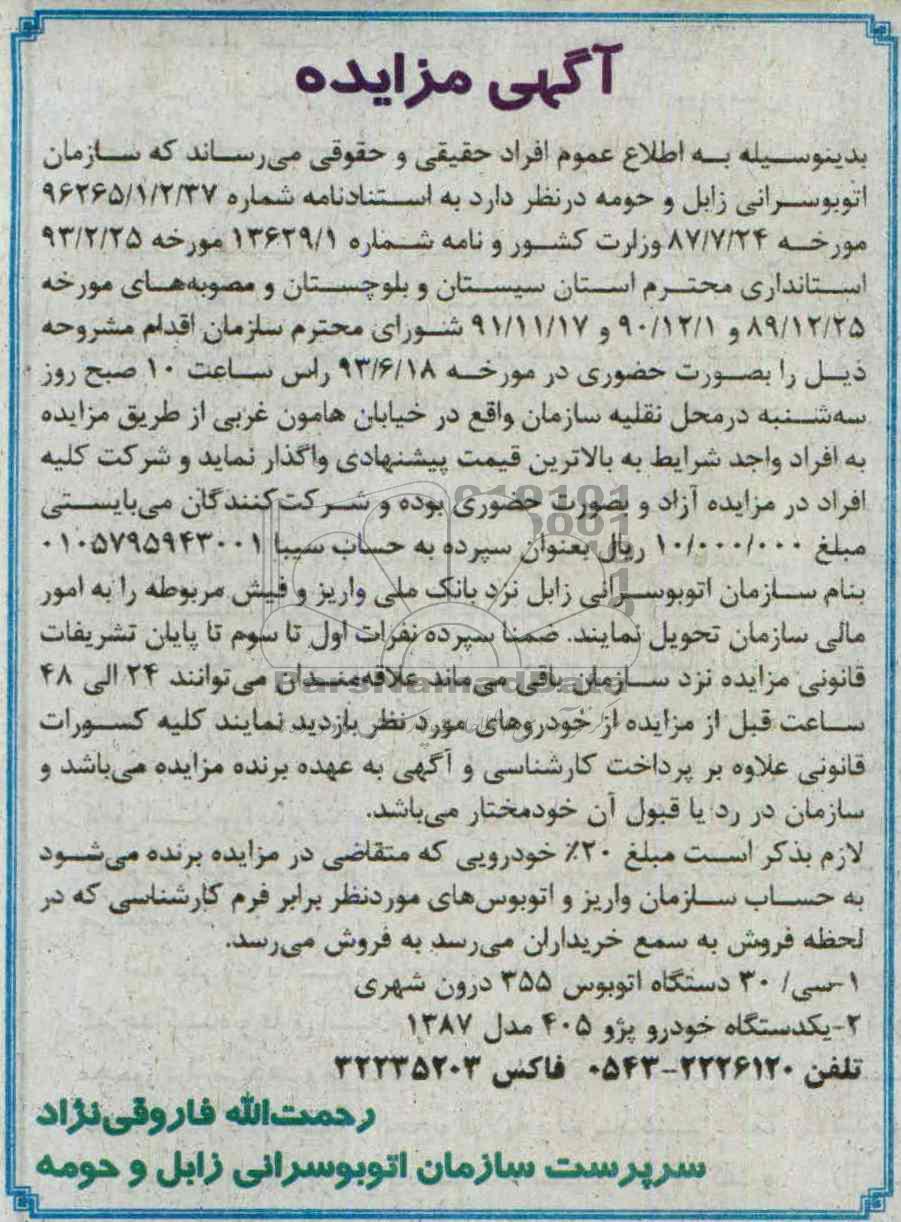 آگهی مزایده
بدینوسیله به اطلاع عموم افراد حقیقی و حقوقی می‌رساند که سازمان
اتوبوسرانی زابل و حومه درنظر دارد به استنادنامه شماره ۹۶۲۶۵/۱/۲/۳۷
مورخه ۸۷/۷/۲۴ وزارت کشور و نامه شماره ۱۳۶۲۹/۱ مورخه ۹۳/۲/۲۵
استانداری محترم استان سیستان و بلوچستان و مصوبه‌های مورخه
۸۹/۱۲/۲۵ و ۹۰/۱۲/۱ و ۹۱/۱۱/۱۷ شورای محترم سازمان اقدام مشروحه
ذیل را بصورت حضوری در مورخه ۹۳/۶/۱۸ راس ساعت ۱۰ صبح روز
سه‌شنبه درمحل نقلیه سازمان واقع در خیابان هامون غربی از طریق مزایده
به افراد واجد شرایط به بالاترین قیمت پیشنهادی واگذار نماید و شرکت کلیه
افراد در مزایده آزاد و بصورت حضوری بوده و شرکت‌کنندگان می‌بایستی
مبلغ ۱۰/۰۰۰/۰۰۰ ریال بعنوان سپرده به حساب سیبا ۰۱۰۵۷۹۵۹۴۳۰۰۱
بنام سازمان اتوبوسرانی زابل نزد بانک ملی واریز و فیش مربوطه را به امور
مالی سازمان تحویل نمایند. ضمنا سپرده نفرات اول تا سوم تا پایان تشریفات
قانونی مزایده نزد سازمان باقی می‌ماند علاقه‌مندان می‌توانند ۲۴ الی ۴۸
ساعت قبل از مزایده از خودروهای مورد نظر بازدید نمایند کلیه کسورات
قانونی علاوه بر پرداخت کارشناسی و آگهی به عهده برنده مزایده می‌باشد و
سازمان در رد یا قبول آن خودمختار می‌باشد.
لازم بذکر است مبلغ ۲۰٪ خودرویی که متقاضی در مزایده برنده می‌شود
به حساب سازمان واریز و اتوبوس‌های موردنظر برابر فرم کارشناسی که در
لحظه فروش به سمع خریداران می‌رسد به فروش می‌رسد.
۱-سی/ ۳۰ دستگاه اتوبوس ۳۵۵ درون شهری
۲-یکدستگاه خودرو پژو ۴۰۵ مدل ۱۳۸۷
تلفن ۲۲۲۶۱۲۰-۰۵۴۳ فاکس ۳۲۲۳۵۲۰۳
رحمت‌الله فاروقی‌نژاد
سرپرست سازمان اتوبوسرانی زابل و حومه